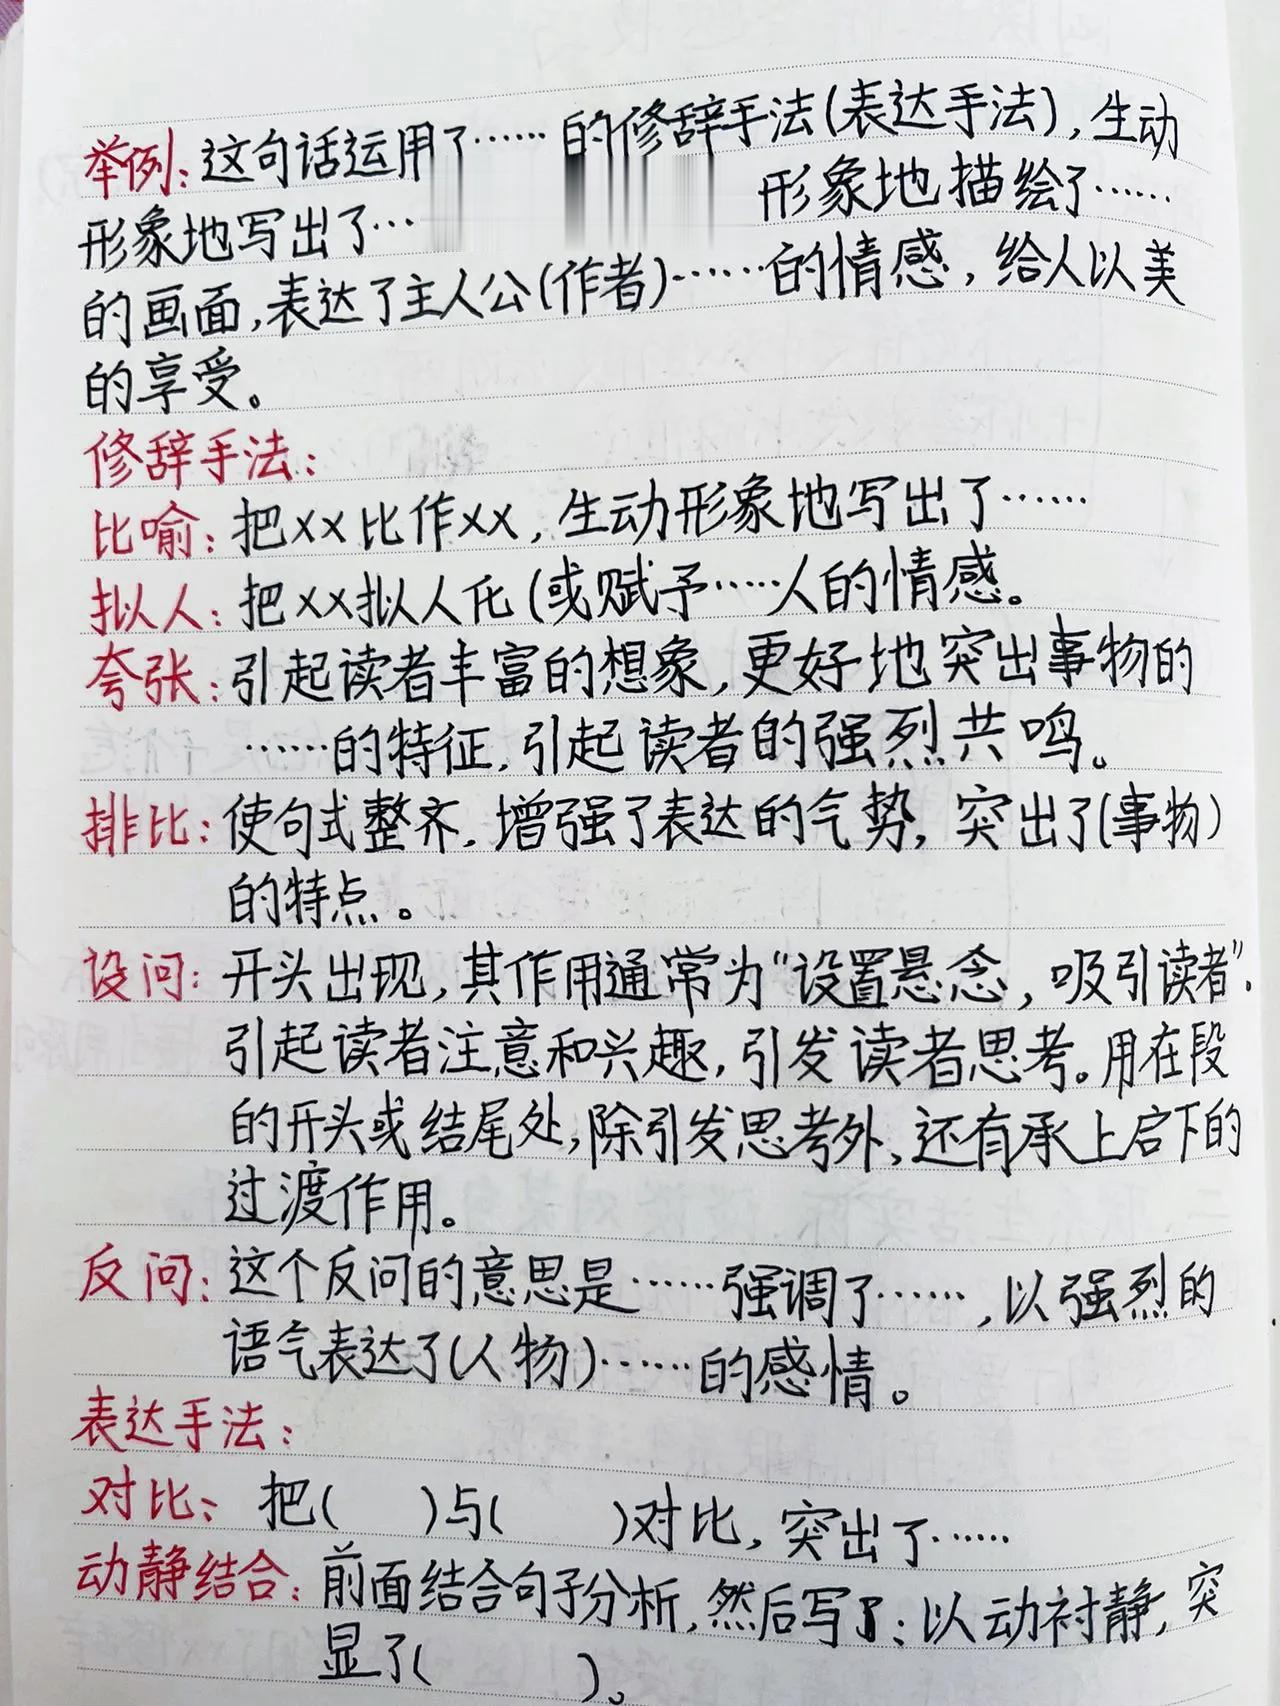 举例:这句话运用了……的修辞手法(表达手法),生动
形象地写出了… 形象地描绘了……
的画面,表达了主人公(作者)……的情感,给人以美
的享受。
修辞手法:
比喻:把xx比作xx,生动形象地写出了……
拟人:把xx拟人化(或赋予……人的情感。
夸张:引起读者丰富的想象,更好地突出事物的
……的特征,引起读者的强烈共鸣。
排比:使句式整齐,增强了表达的气势,突出了(事物)
的特点。
设问:开头出现,其作用通常为"设置悬念,吸引读者".
引起读者注意和兴趣,引发读者思考。用在段
的开头或结尾处,除引发思考外,还有承上启下的
过渡作用。
反问:这个反问的意思是……强调了……,以强烈的
语气表达了(人物)……的感情。
表达手法:
对比:把( )与( )对比,突出了……
动静结合:前面结合句子分析,然后写了:以动衬静,突
显了( )。